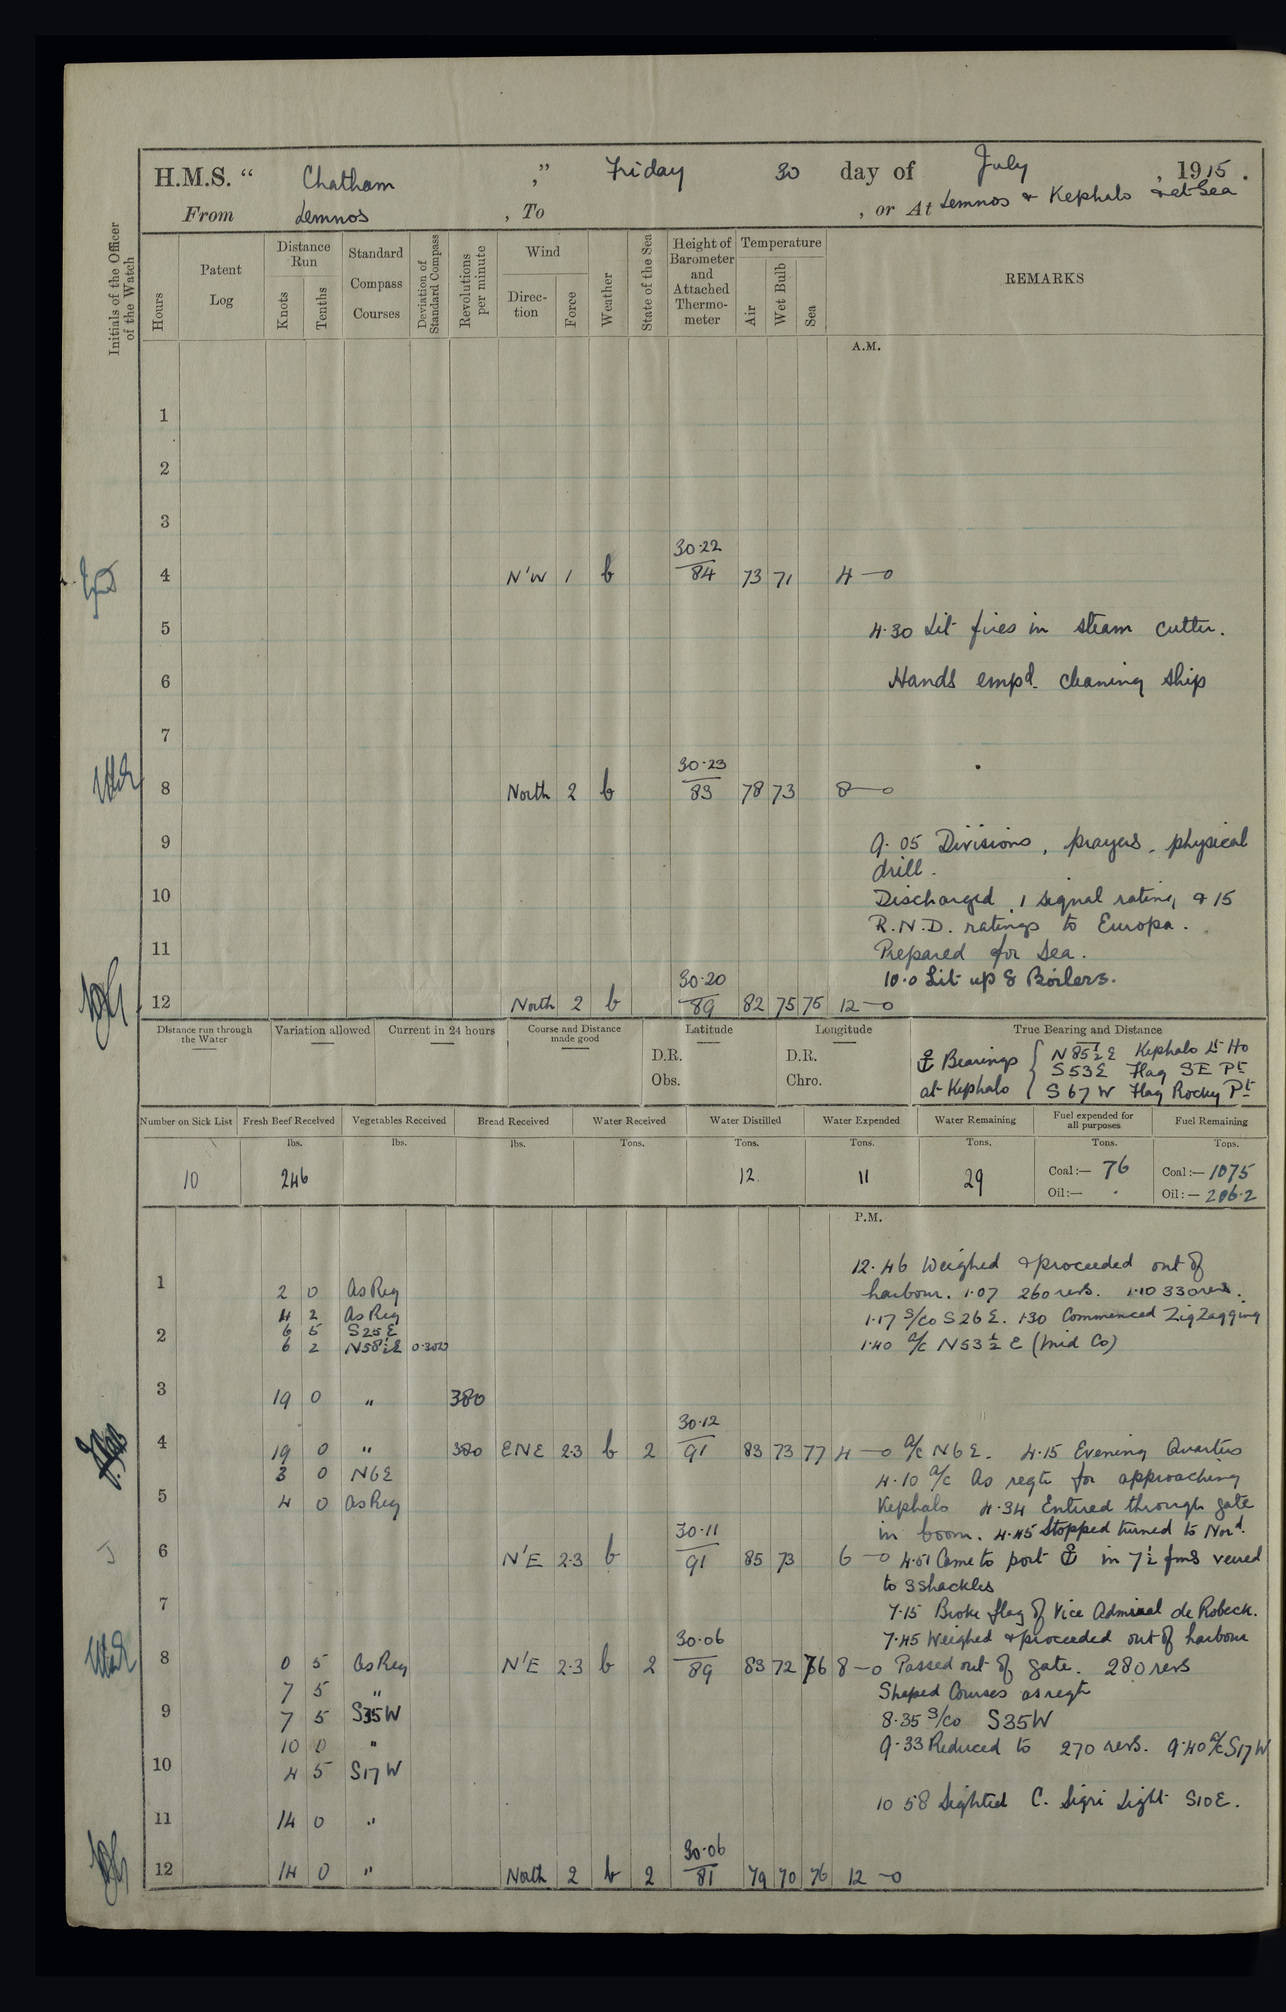 H.M.S. “ Chatham ,” Friday 30 day of July , 1915.
From Lemnos , To , or At Lemnos & Kephalo & at Sea
Initials of the Officer of the Watch
Hours
Patent Log
Distance Run
Knots
Tenths
Standard Compass Courses
Deviation of Standard Compass
Revolutions per minute
Wind
Direc- tion
Force
Weather
State of the Sea
Height of Barometer and Attached Thermo- meter
Temperature
Air
Wet Bulb
Sea
REMARKS
A.M.
1
2
3
30·22
4 N'W 1 b 84 73 71 4 —o
5 4·30 Lit fires in steam cutter.
6 Hands empd. cleaning ship
7
30·23
8 North 2 b 83 78 73 8 —o
9 9·05 Divisions, prayers, physical
drill.
10 Discharged 1 signal rating & 15
R.N.D. ratings to Europa.
11 Prepared for Sea.
30·20 10·0 Lit up 8 Boilers.
12 North 2 b 89 82 75 75 12 —o
Distance run through the Water
Variation allowed
Current in 24 hours
Course and Distance made good
Latitude
D.R.
Obs.
Longitude
D.R.
Chro.
True Bearing and Distance
⚓ Bearings at Kephalo
N 85½ E Kephalo Lt Ho
S 53 E Flag SE Pt
S 67 W Flag Rocky Pt
Number on Sick List
Fresh Beef Received
Vegetables Received
Bread Received
Water Received
Water Distilled
Water Expended
Water Remaining
Fuel expended for all purposes
Fuel Remaining
lbs. lbs. lbs. Tons. Tons. Tons. Tons. Tons. Tons.
10 246 12 11 29
Coal:— 76 Coal:— 1075
Oil:— · Oil:— 206·2
P.M.
12·46 Weighed & proceeded out of
1 2 0 As Req harbour. 1·07 260 revs. 1·10 330 revs.
4 2 As Req 1·17 S/Co S26E. 1·30 Commenced ZigZagging
2 6 5 S25E
6 2 N58½E 1·40 A/c N53½E (Mid Co)
3 19 0 " 380
30·12
4 19 0 " 380 ENE 2·3 b 2 91 83 73 77 4 —o A/c N6E. 4·15 Evening Quarters
3 0 N6E 4·10 A/c As reqte for approaching
5 4 0 As Req Kephalo 4·34 Entered through gate
30·11 in boom. 4·45 Stopped turned to Nord.
6 N'E 2·3 b 91 85 73 6 —o 4·51 Came to port ⚓ in 7½ fms veered
to 3 shackles
7 7·15 Broke flag of Vice Admiral de Robeck.
30·06 7·45 Weighed & proceeded out of harbour
8 0 5 As Req N'E 2·3 b 2 89 83 72 76 8 —o Passed out of gate. 280 revs
7 5 " Shaped Courses as reqte
9 7 5 S35W 8·35 S/Co S35W
10 0 " 9·33 Reduced to 270 revs. 9·40 A/c S17W
10 4 5 S17W
10 58 Sighted C. Sigri Light S10E.
11 14 0 "
30·06
12 14 0 " North 2 b 2 81 79 70 76 12 —o